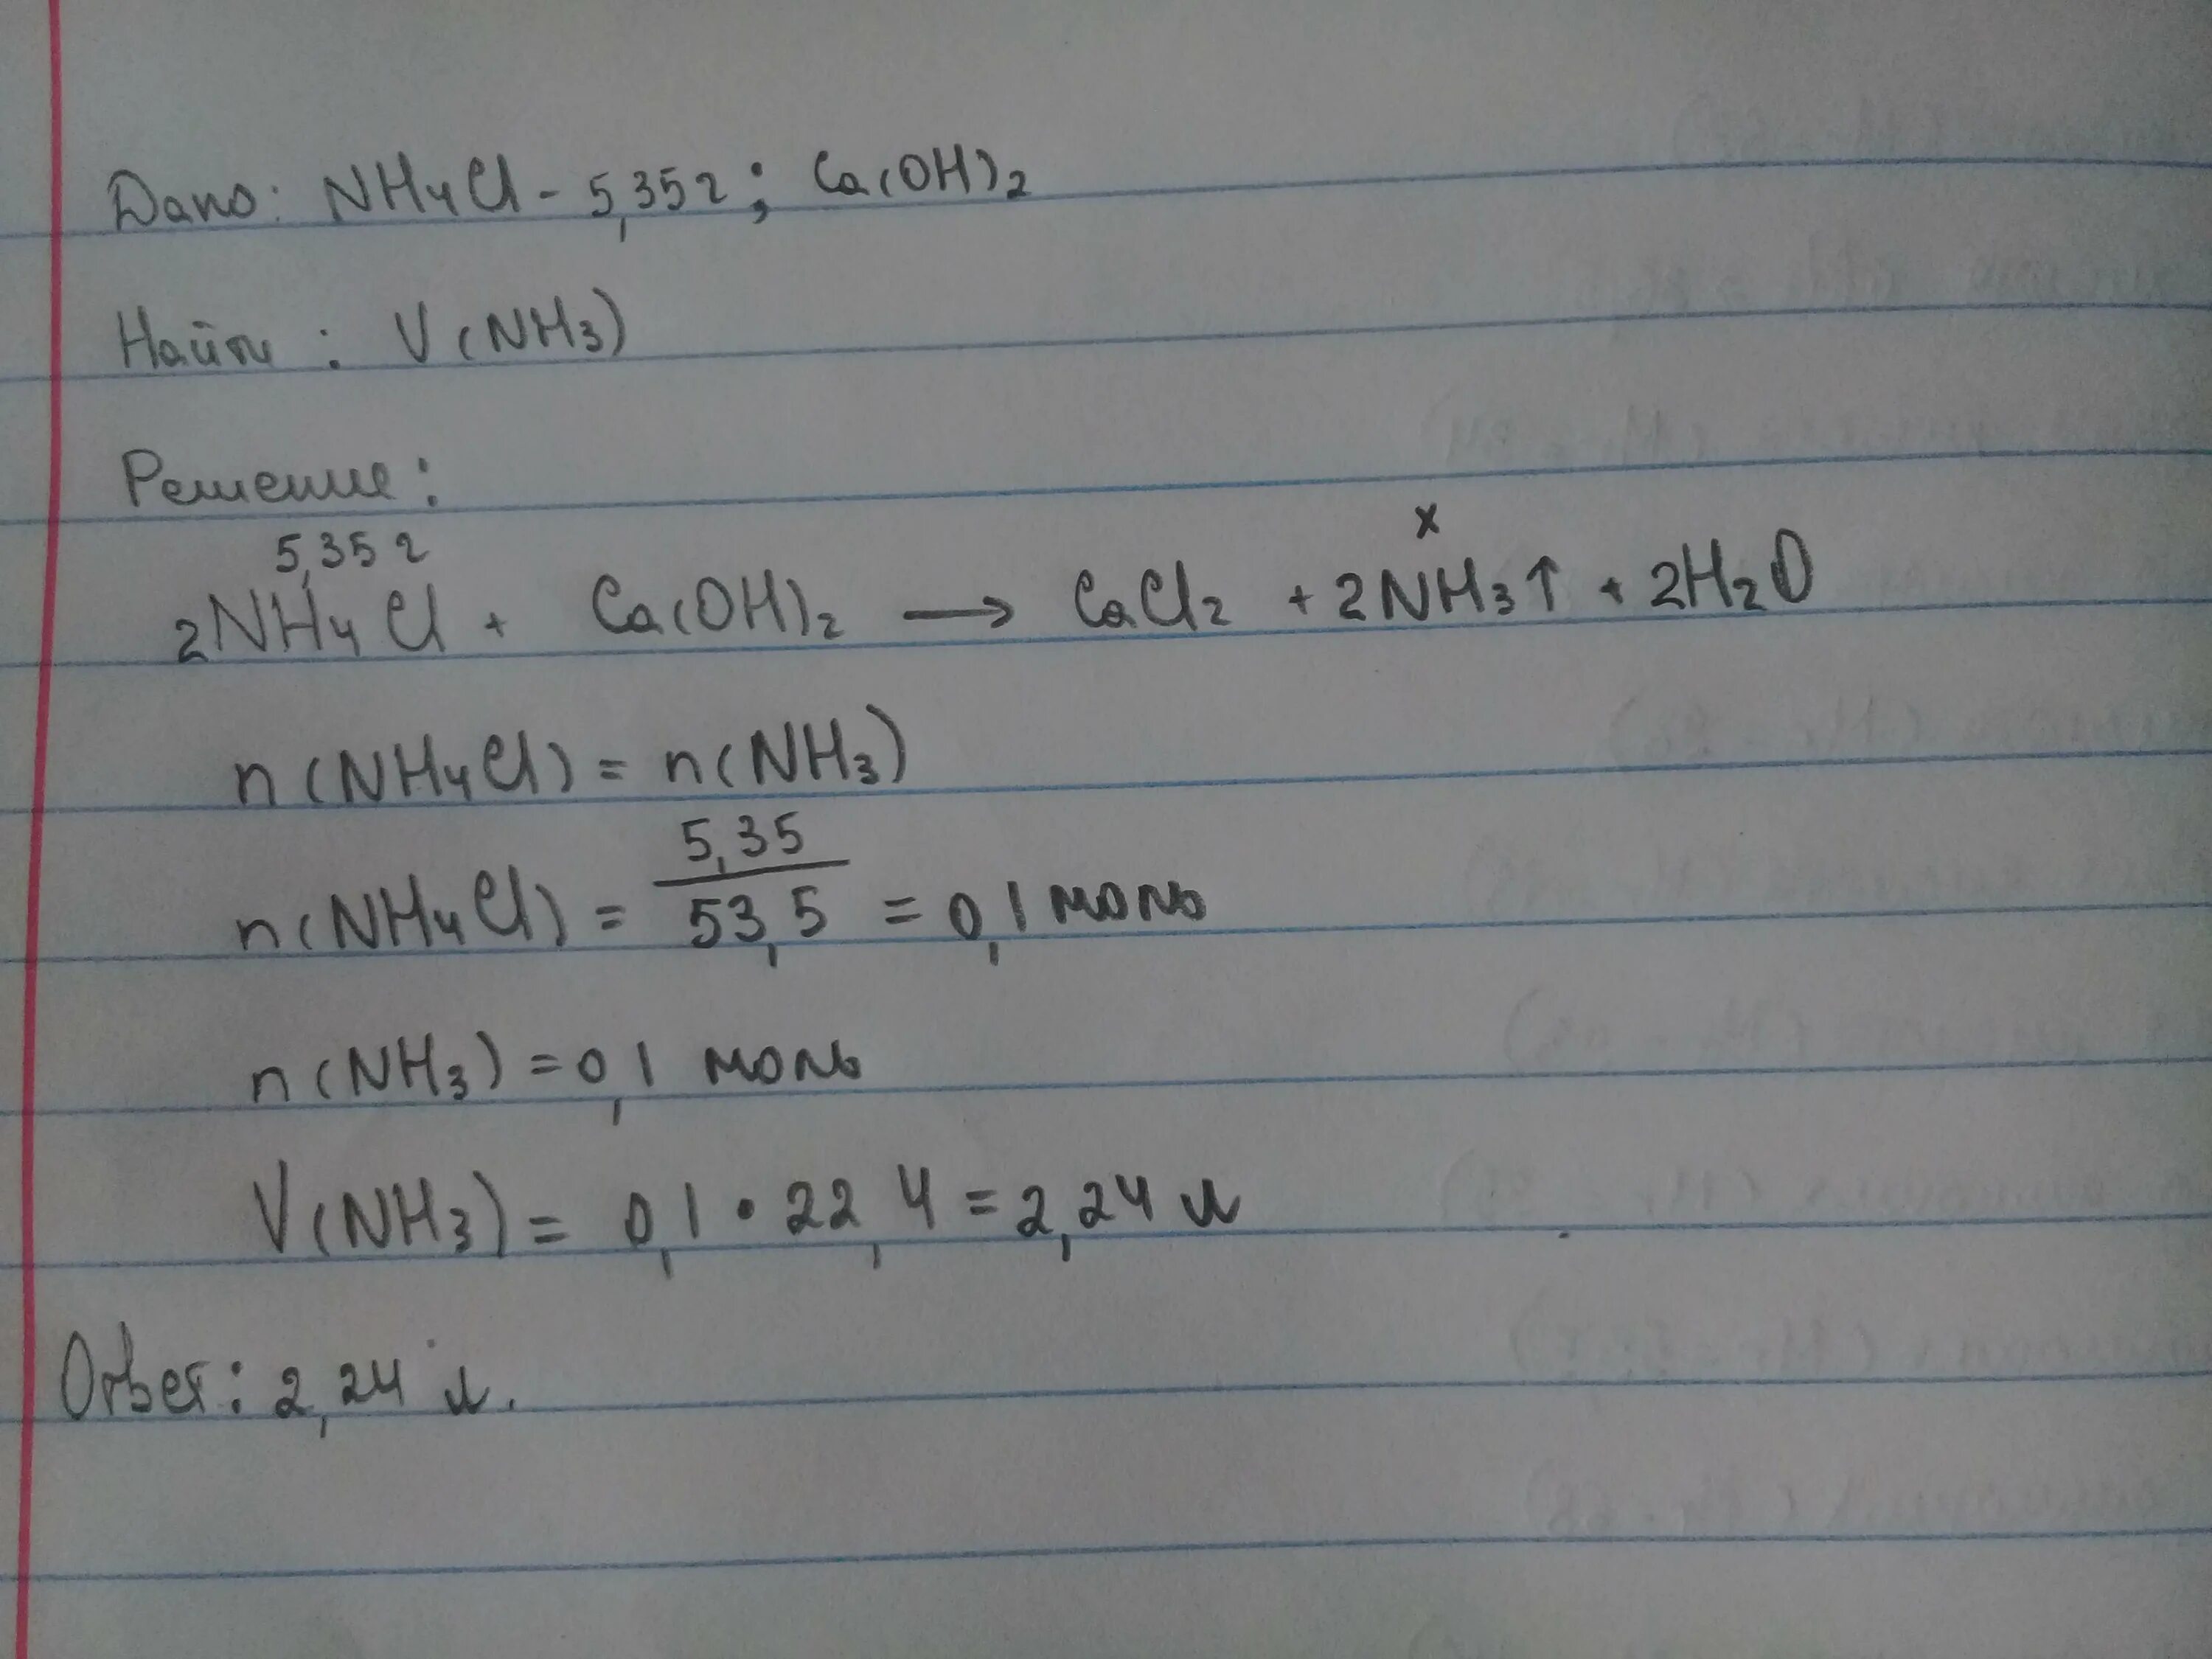 Дано: NH4Cl - 5,35 г; Ca(OH)2
Найти : V(NH3)
Решение:
5,35 г x
2NH4Cl + Ca(OH)2 → CaCl2 + 2NH3↑ + 2H2O
n(NH4Cl) = n(NH3)
n(NH4Cl) = 5,35 / 53,5 = 0,1 моль
n(NH3) = 0,1 моль
V(NH3) = 0,1 • 22,4 = 2,24 л
Ответ: 2,24 л.